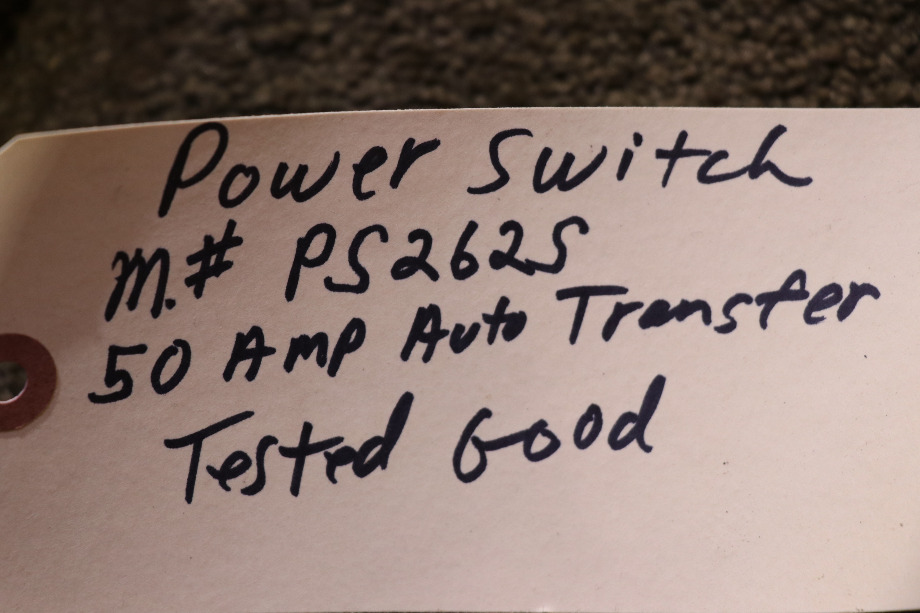 Power Switch
M.# PS262S
50 Amp Auto Transfer
Tested Good